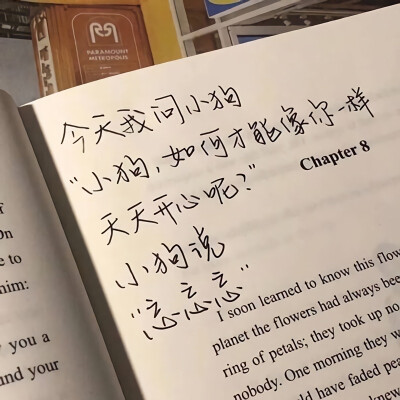 PARAMOUNT
METROPOLIS
今天我问小狗
"小狗,如何才能像你一样
天天开心呢?"
小狗说
"忘忘忘"
Chapter 8
I soon learned to know this flow
planet the flowers had always bee
ring of petals; they took up no
nobody. One morning they w
ld have faded pea
knew
On
e to
him:
y you a
and your